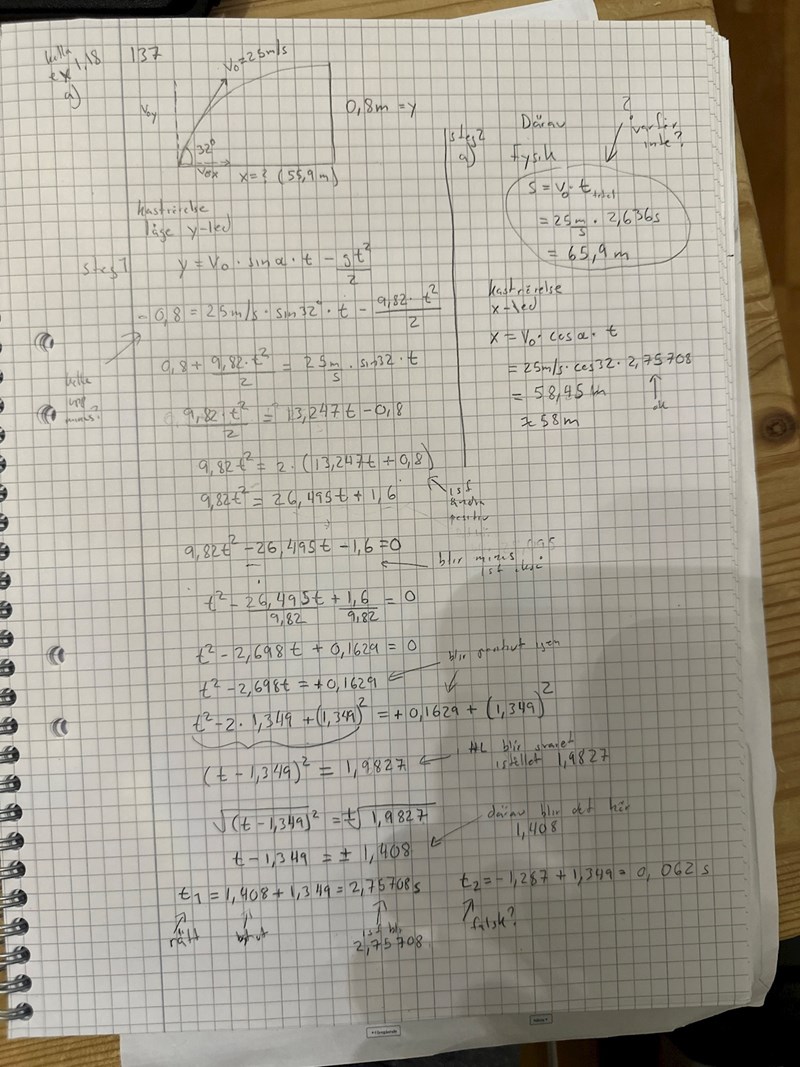 kolla
ex 1,18
137
a)
V₀=25m/s
V₀y
32°
V₀x
x=? (55,9m)
0,8m =y
kaströrelse
läge y-led
steg 1
y = V₀ · sin α · t − gt²/2
− 0,8 = 25m/s · sin32° · t − 9,82 · t²/2
0,8 + 9,82·t²/2 = 25 m/s · sin32 · t
kolla
upp
minus?
9,82·t²/2 = 13,247t − 0,8
9,82t² = 2 · (13,247t + 0,8)
ist
ändra
positiv
9,82t² = 26,495t + 1,6
9,82t² − 26,495t − 1,6 = 0
blir minus
ist
t² − 26,495t/9,82 + 1,6/9,82 = 0
t² − 2,698t + 0,1629 = 0
t² − 2,698t = +0,1629
blir
igen
t² − 2 · 1,349 + (1,349)² = +0,1629 + (1,349)²
(t − 1,349)² = 1,9827
HL blir svaret
istället 1,9827
√(t − 1,349)² = ±√1,9827
t − 1,349 = ± 1,408
därav blir det här
1,408
t₁ = 1,408 + 1,349 = 2,75708 s
rätt
ist blir
2,75708
t₂ = − 1,287 + 1,349 = 0,062 s
falsk?
steg 2
a)
Därav
Fysik
?
varför
inte?
s = v₀ · t total
= 25 m/s · 2,636s
= 65,9 m
kaströrelse
x-led
x = V₀ · cos α · t
= 25m/s · cos32 · 2,75708
= 58,45 m
≈ 58 m